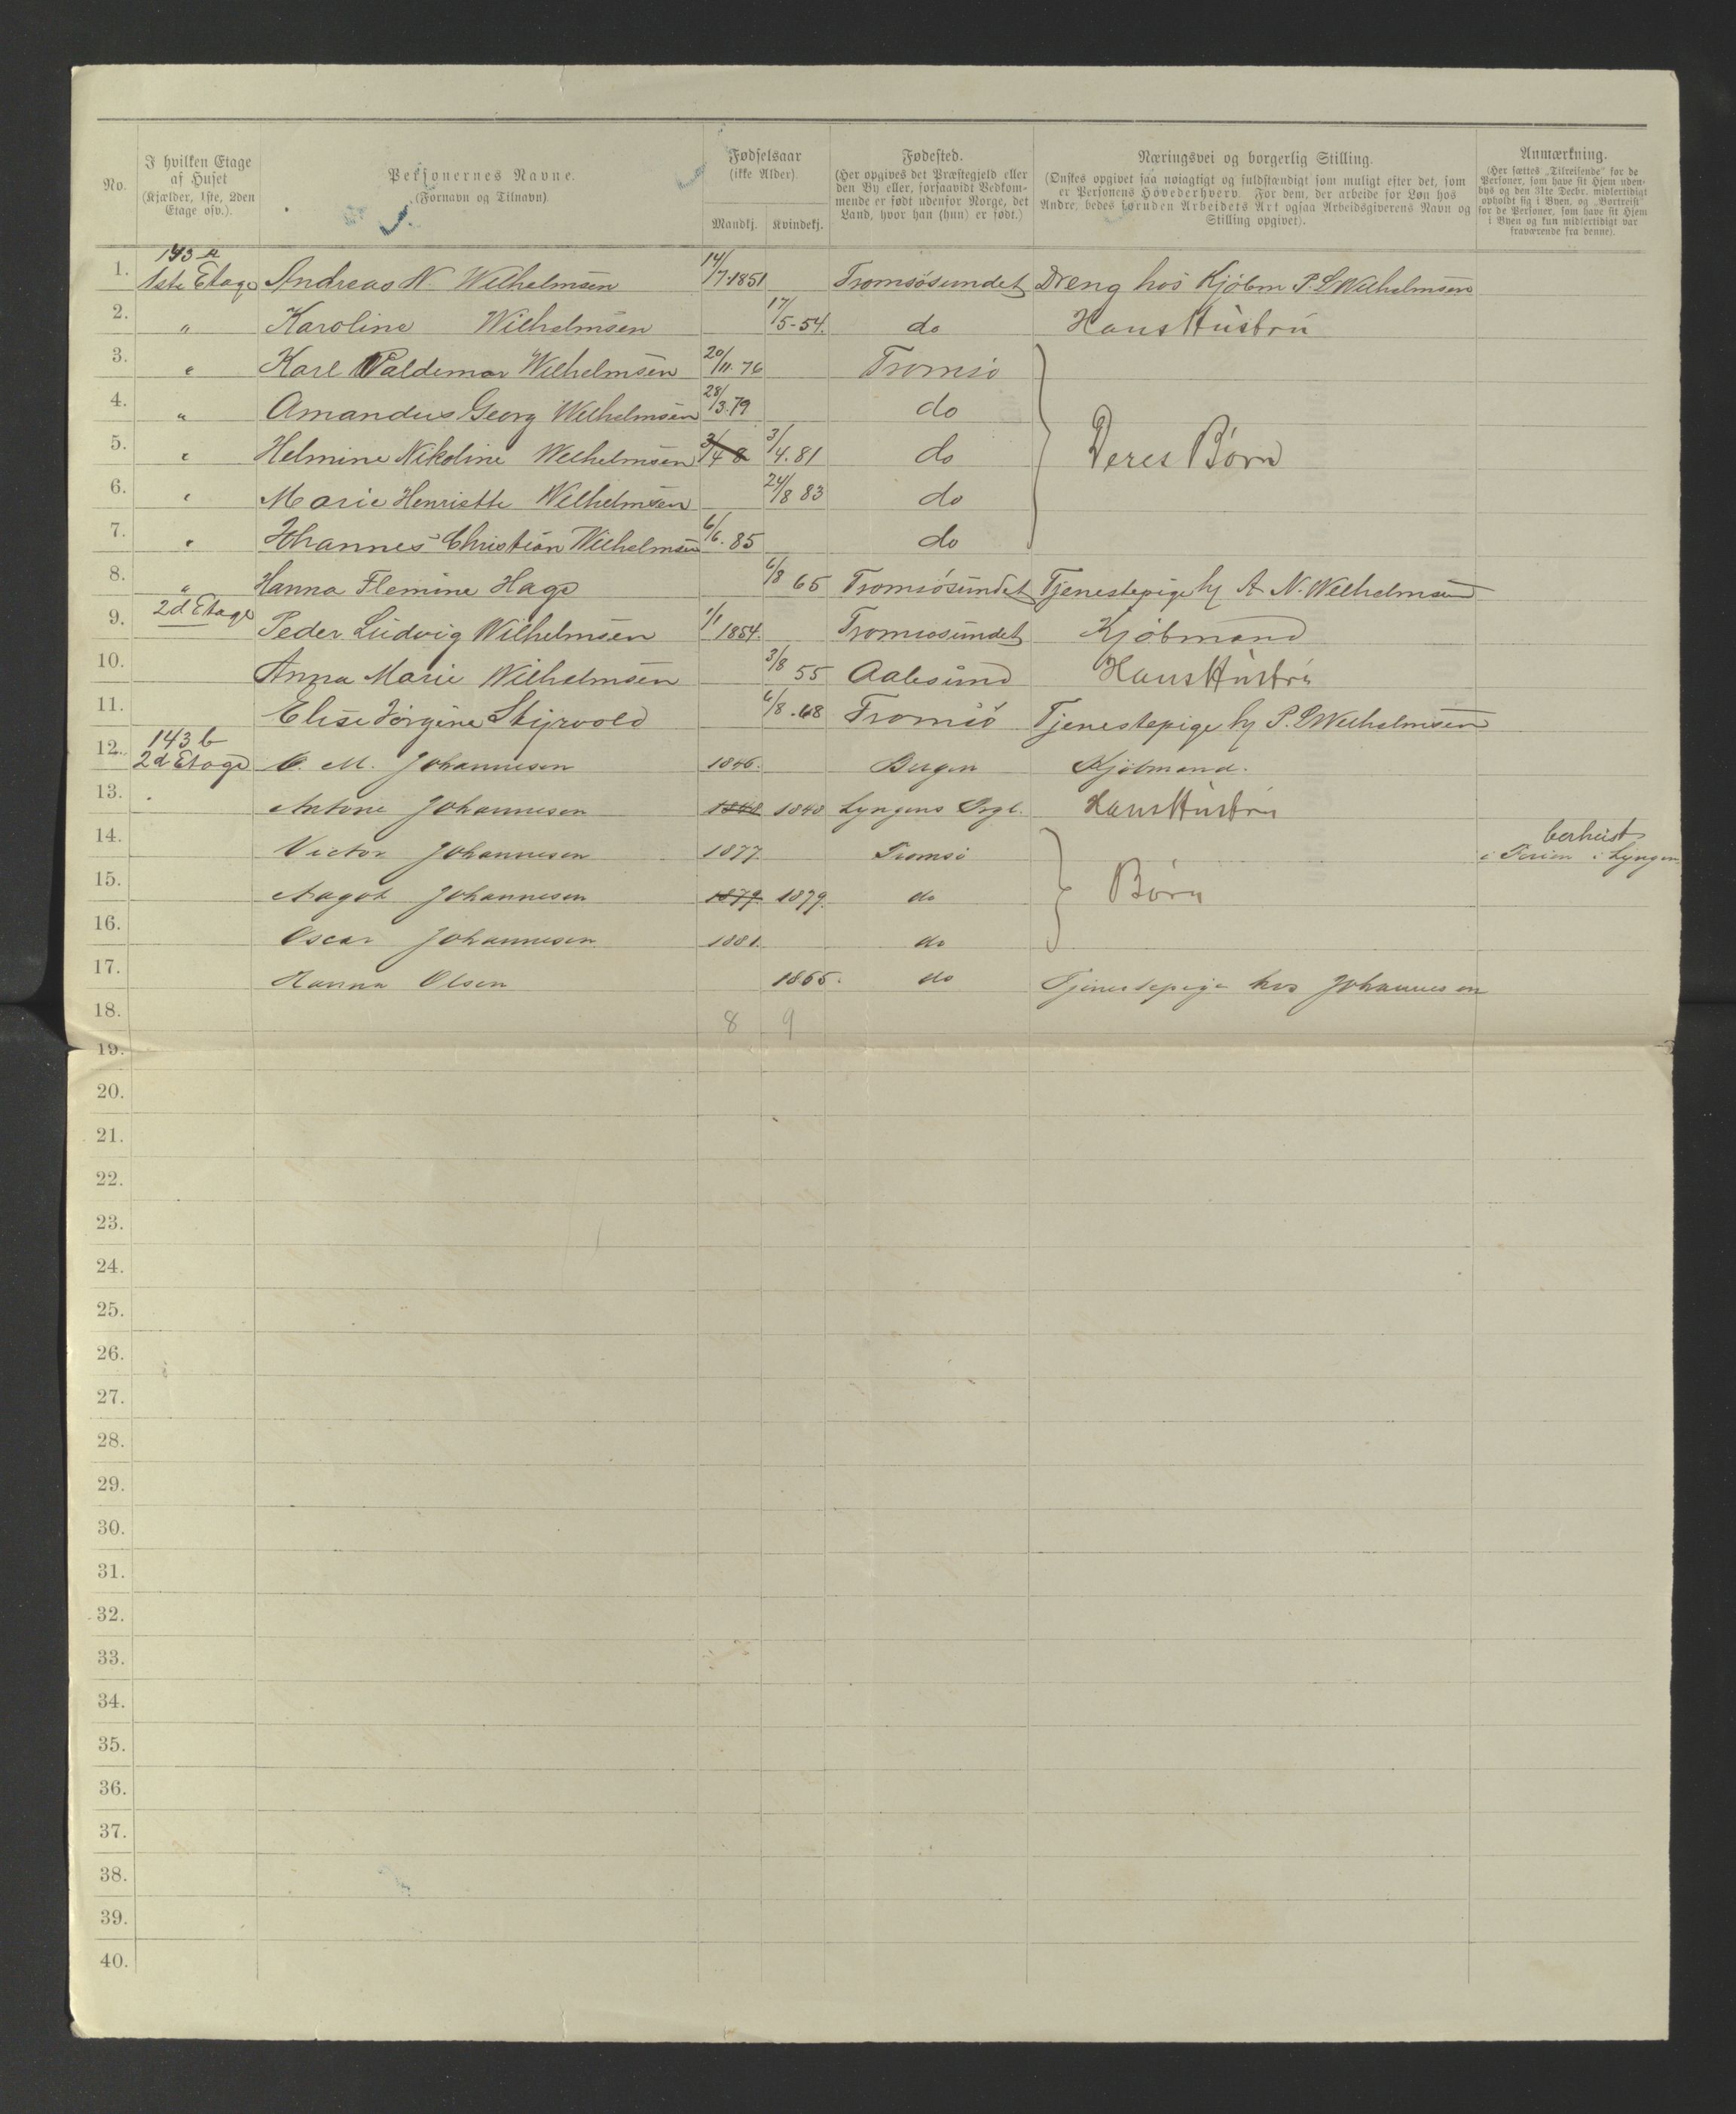 No.
I hvilken Etage af Huset (Kjælder, 1ste, 2den Etage osv.).
Personernes Navne. (Fornavn og Tilnavn)
Fødselsaar (ikke Alder)
Mandkj. Kvindekj.
Fødested. (Her opgives det Præstegjeld eller den By eller, forsaavidt Vedkommende er født udenfor Norge, det Land, hvor han (hun) er født.)
Næringsvei og borgerlig Stilling. (Ønskes opgivet saa nøiagtigt og fuldstændigt som muligt efter det, som er Personens Hovederhverv. For dem, der arbeide for Løn hos Andre, bedes foruden Arbeidets Art ogsaa Arbeidsgiverens Navn og Stilling opgivet).
Anmærkning. (Her sættes „Tilreisende“ for de Personer, som have sit Hjem udenbys og den 31te Decbr. midlertidigt opholdt sig i Byen, og „Bortreist“ for de Personer, som have sit Hjem i Byen og kun midlertidigt var fraværende fra denne).
143 a
1. 1ste Etage Andreas N. Wilhelmsen 14/7 1851 Tromsøsundet Dreng hos Kjøbm P. L Wilhelmsen
2. " Karoline Wilhelmsen 17/5-54. do Hans Hustru
3. " Karl Valdemar Wilhelmsen 20/11 76 Tromsø
4. " Amandus Georg Wilhelmsen 28/3.79 do
5. " Helmine Nikoline Wilhelmsen 3/4 8 3/4.81 do Deres Børn
6. " Marie Henriette Wilhelmsen 24/8 83 do
7. " Johannes Christian Wilhelmsen 6/6. 85 do
8. " Hanna Flemine Hage 6/8 65 Tromsøsundet Tjenestepige hj A. N. Wilhelmsen
9. 2d Etage Peder Ludvig Wilhelmsen 1/1 1854. Tromsøsundet Kjøbmand
10. Anna Marie Wilhelmsen 3/8 55 Aalesund Hans Hustru
11. Elise Jørgine 6/8.68 Tromsø Tjenestepige hj P. L Wilhelmsen
143 b
12. 2d Etage O. M. Johannesen 1846. Bergen Kjøbmand.
13. Antone Johannesen 1848 1848 Lyngens Prgl. Hans Hustru
14. Victor Johannesen 1877. Tromsø
bortreist
i Ferien i Lyngen
15. Aagot Johannesen 1879 1879. do Børn
16. Oscar Johannesen 1881. do
17. Hanna Olsen 1865. do Tjenestepige hos Johannesen
18. 8 9
19.
20.
21.
22.
23.
24.
25.
26.
27.
28.
29.
30.
31.
32.
33.
34.
35.
36.
37.
38.
39.
40.